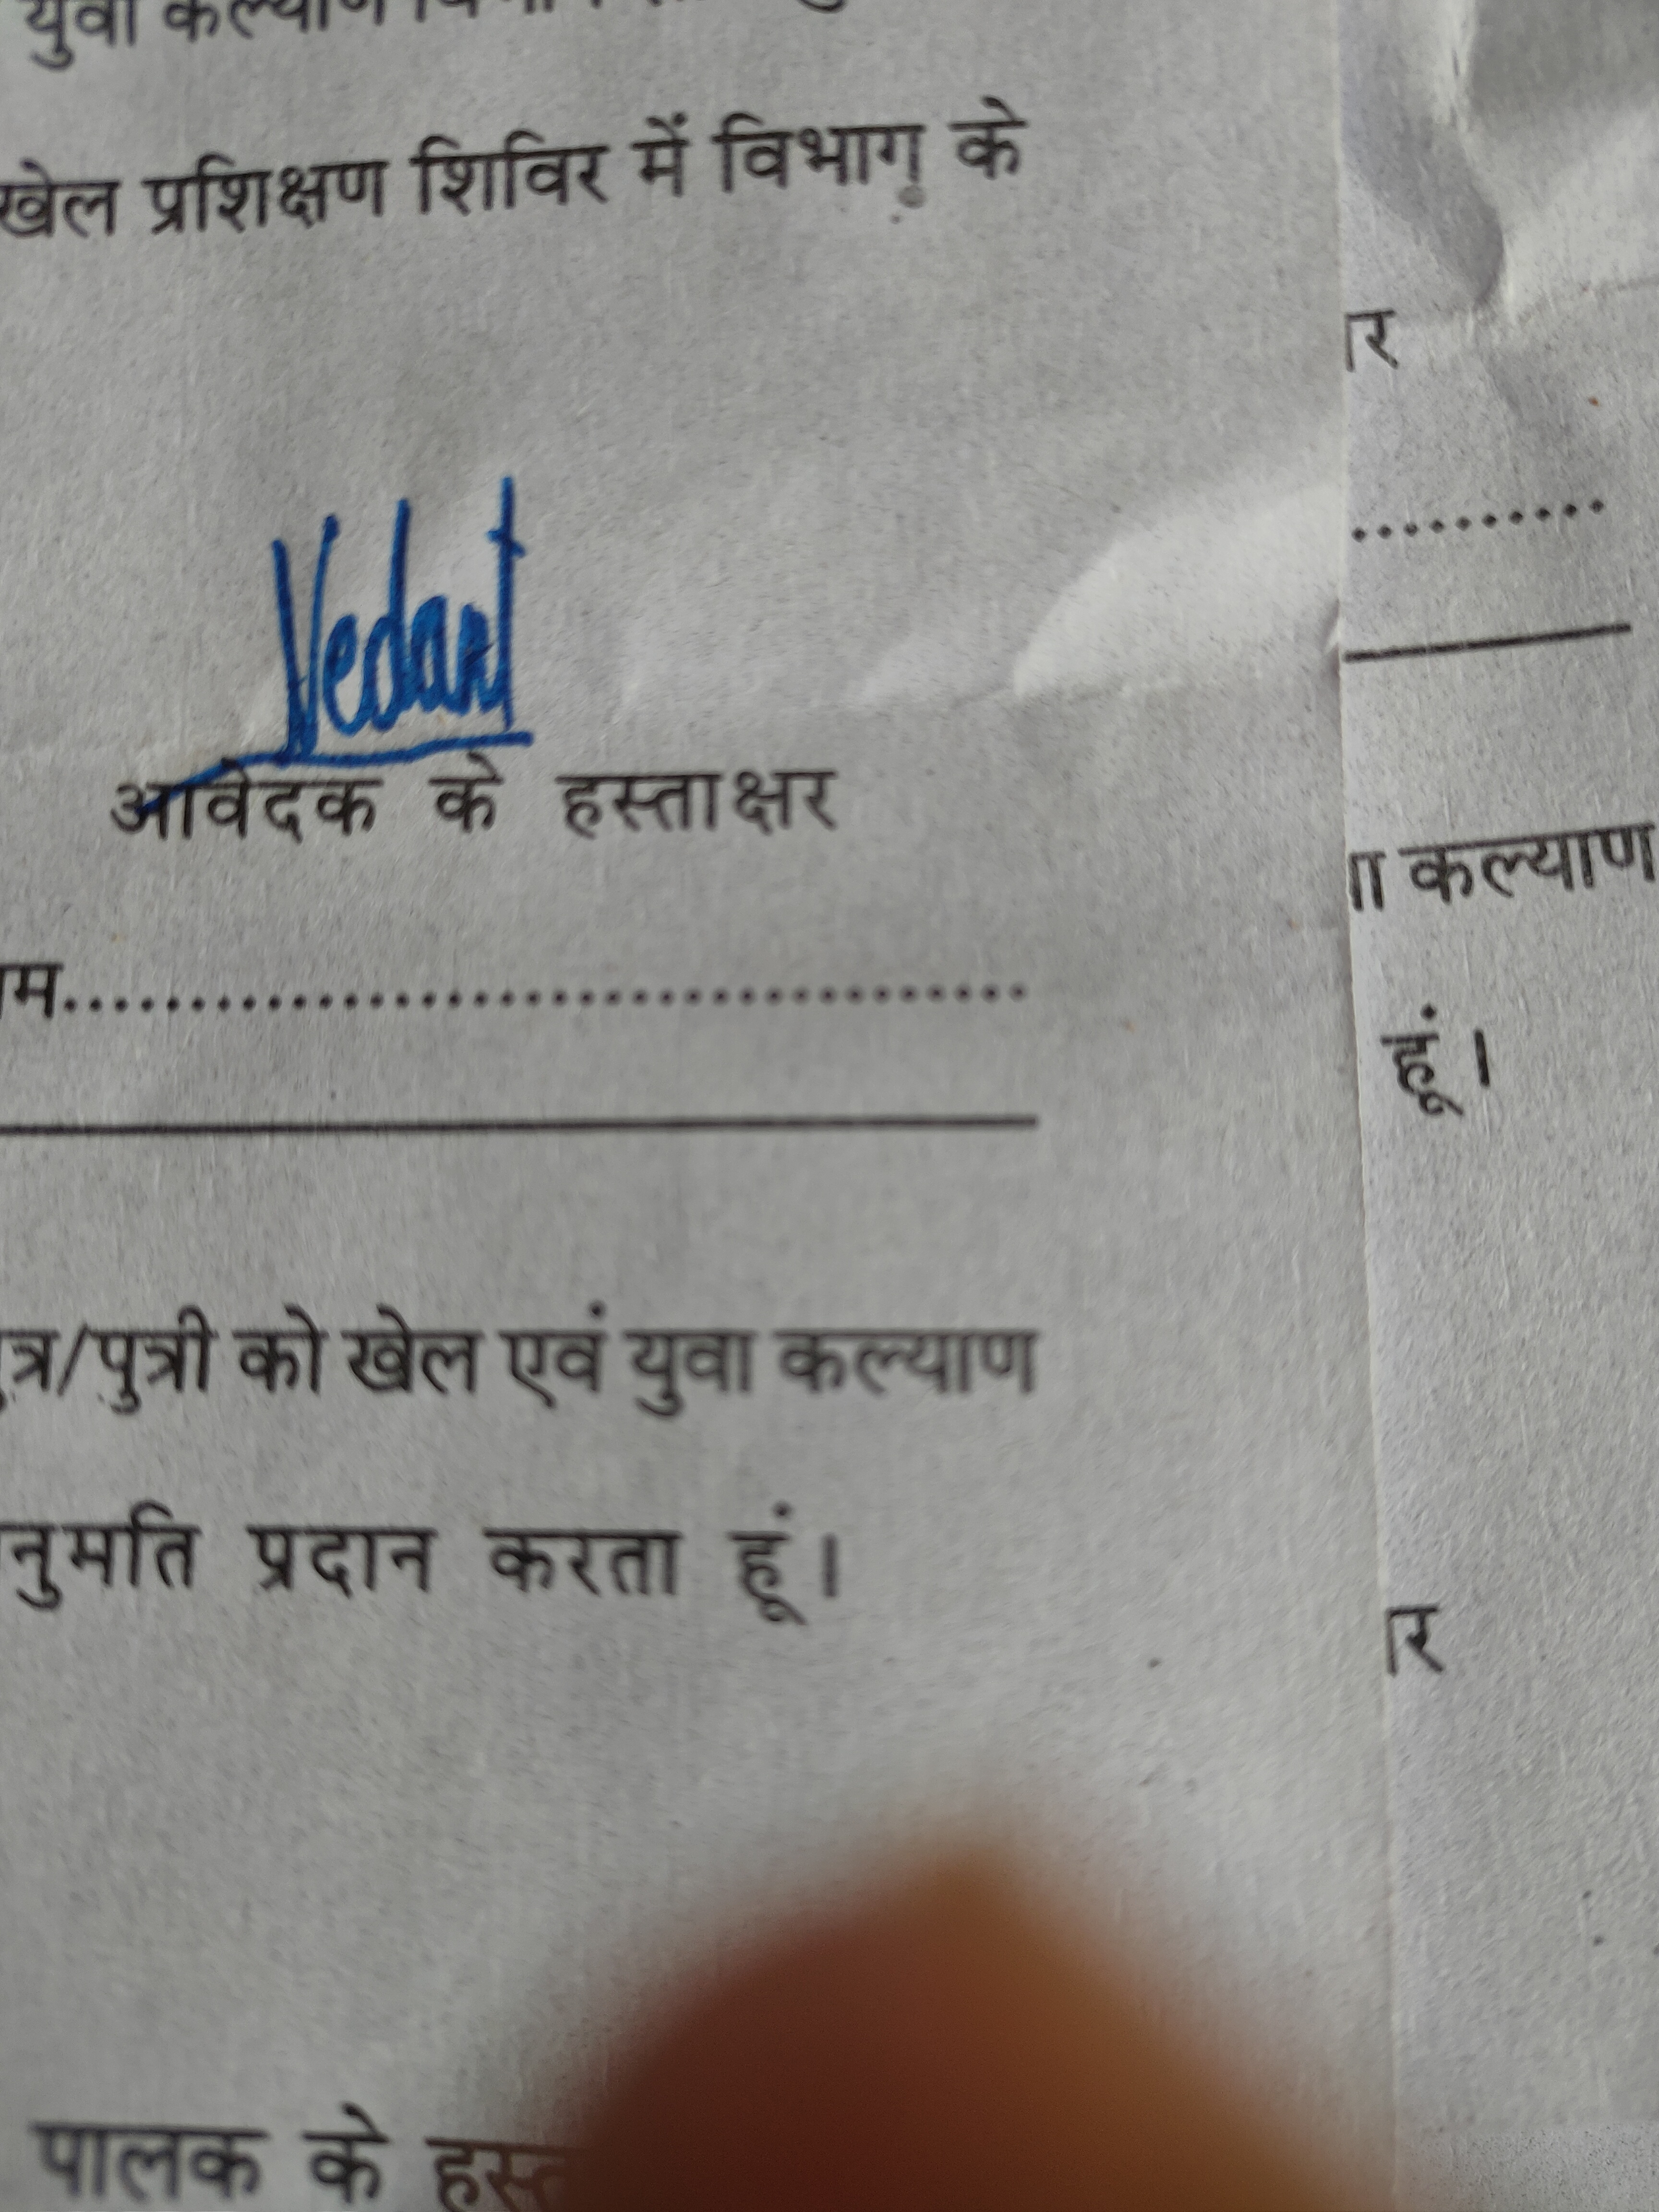 युवा कल्याण
खेल प्रशिक्षण शिविर में विभाग के
Vedant
आवेदक के हस्ताक्षर
म.......................................
त्र/पुत्री को खेल एवं युवा कल्याण
नुमति प्रदान करता हूं।
पालक के
र
..........
ा कल्याण
हूं।
र